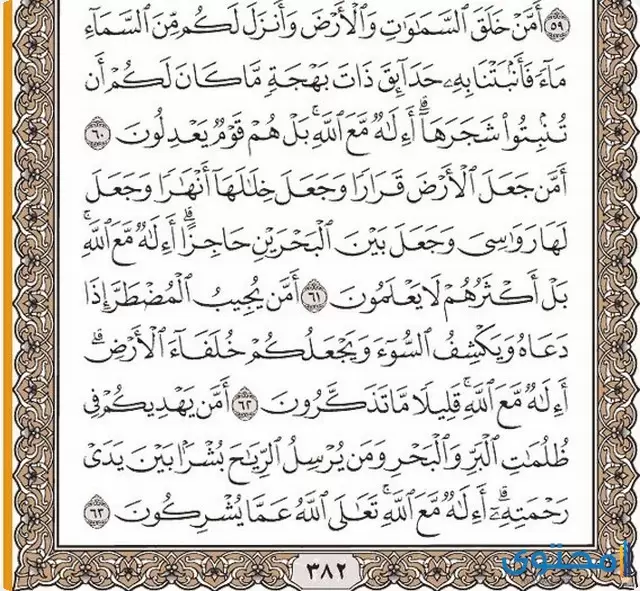 ٥٩ أَمَّنْ خَلَقَ ٱلسَّمَٰوَٰتِ وَٱلْأَرْضَ وَأَنزَلَ لَكُم مِّنَ ٱلسَّمَآءِ
مَآءً فَأَنۢبَتْنَا بِهِۦ حَدَآئِقَ ذَاتَ بَهْجَةٍ مَّا كَانَ لَكُمْ أَن
تُنۢبِتُوا۟ شَجَرَهَآ ۗ أَءِلَٰهٌ مَّعَ ٱللَّهِ ۚ بَلْ هُمْ قَوْمٌ يَعْدِلُونَ ٦٠
أَمَّن جَعَلَ ٱلْأَرْضَ قَرَارًا وَجَعَلَ خِلَٰلَهَآ أَنْهَٰرًا وَجَعَلَ
لَهَا رَوَٰسِىَ وَجَعَلَ بَيْنَ ٱلْبَحْرَيْنِ حَاجِزًا ۗ أَءِلَٰهٌ مَّعَ ٱللَّهِ ۚ
بَلْ أَكْثَرُهُمْ لَا يَعْلَمُونَ ٦١ أَمَّن يُجِيبُ ٱلْمُضْطَرَّ إِذَا
دَعَاهُ وَيَكْشِفُ ٱلسُّوٓءَ وَيَجْعَلُكُمْ خُلَفَآءَ ٱلْأَرْضِ ۗ
أَءِلَٰهٌ مَّعَ ٱللَّهِ ۚ قَلِيلًا مَّا تَذَكَّرُونَ ٦٢ أَمَّن يَهْدِيكُمْ فِى
ظُلُمَٰتِ ٱلْبَرِّ وَٱلْبَحْرِ وَمَن يُرْسِلُ ٱلرِّيَٰحَ بُشْرًۢا بَيْنَ يَدَىْ
رَحْمَتِهِۦٓ ۗ أَءِلَٰهٌ مَّعَ ٱللَّهِ ۚ تَعَٰلَى ٱللَّهُ عَمَّا يُشْرِكُونَ ٦٣
٣٨٢
محتوى